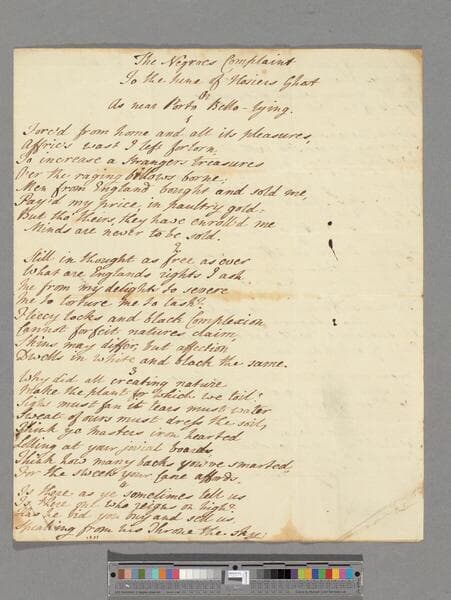 The Negroes Complaint
To the tune of Hosiers Ghost
Or
As near Porto Bello lying.
1
Forc'd from home and all its pleasures,
Affric's coast I left forlorn
To increase a strangers treasures
O'er the raging billows borne.
Men from England bought and sold me,
Pay'd my price, in paultry gold.
But tho' theirs, they have enroll'd me
Minds are never to be sold.
2
Still in thought as free as ever
What are Englands rights I ask
me from my delights to sever
me to torture me to task?
Fleecy locks and black Complexion
Cannot forfeit natures claim
Skins may differ, but affection
Dwells in White and black the same.
3
Why did all creating nature
make the plant for which we toil?
Sighs must fan it tears must water
Sweat of ours must dress the soil,
Think ye masters iron hearted
Lolling at your jovial boards,
Think how many backs you've smarted,
For the sweets your Cane affords.
Is there as ye sometimes tell us
Is there one who reigns on high?
Has he bid you buy and sell us,
Speaking from his Throne the sky